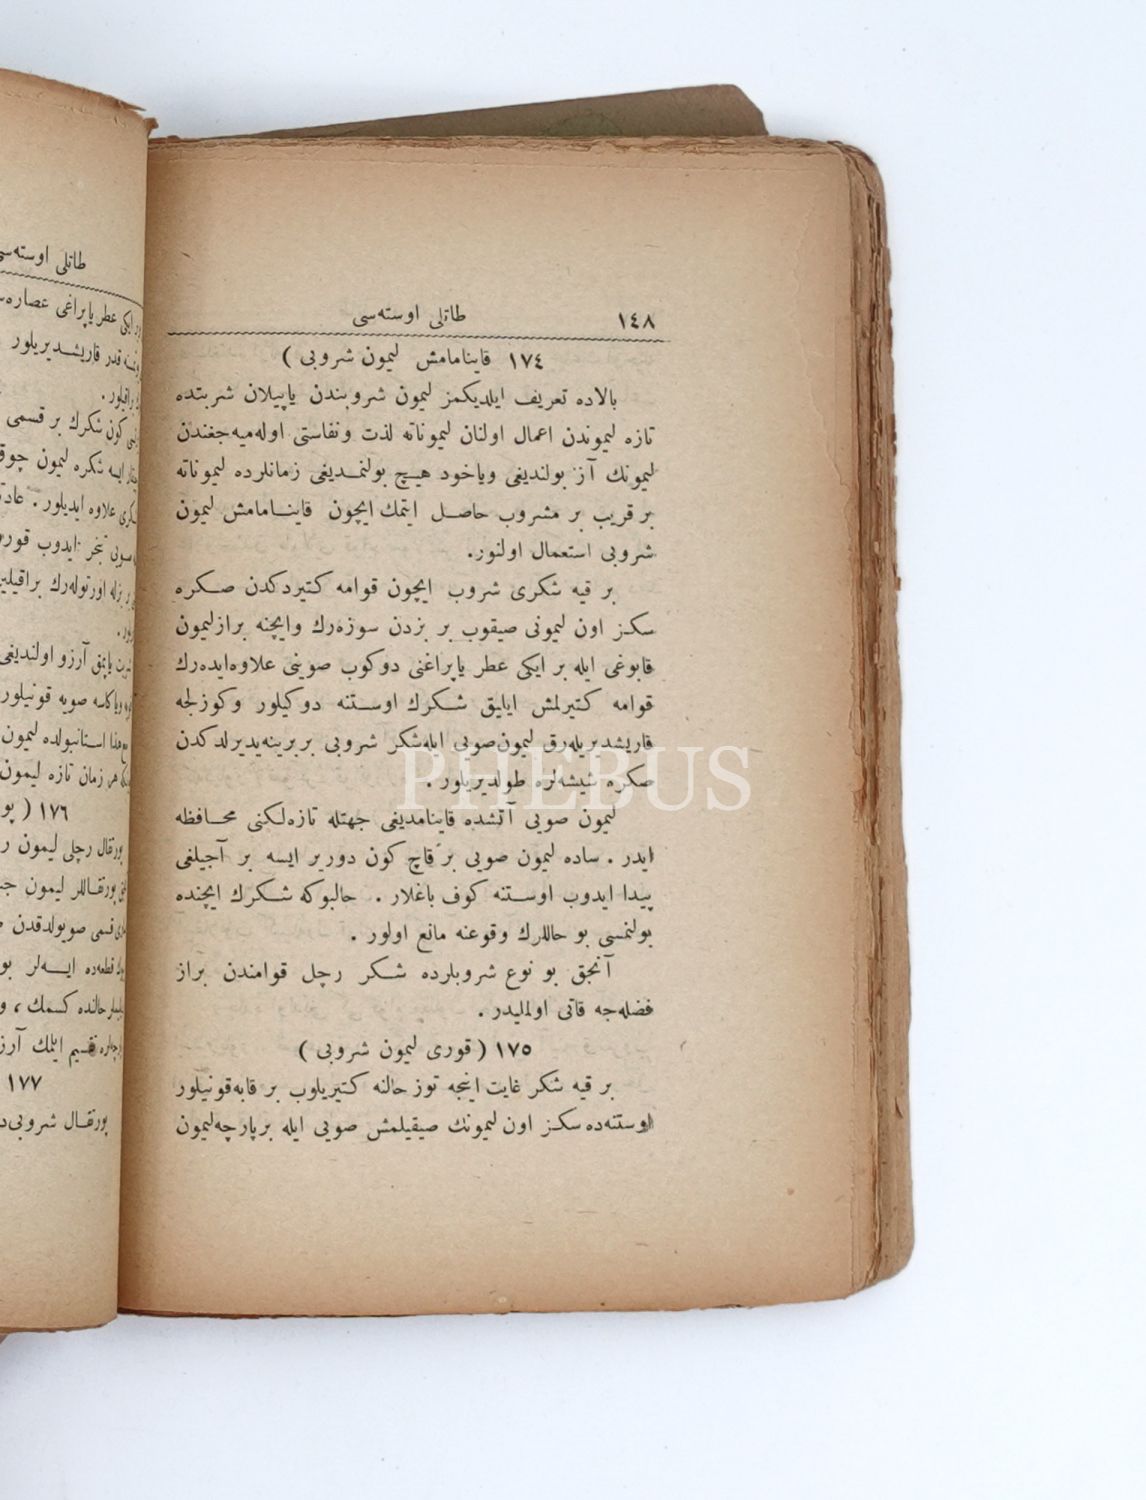 ١٤٨
طاتلی اوسته‌سی
١٧٤ قاینامامش لیمون شروبی )
بالاده تعریف ایلدیكمز لیمون شروبندن یاپیلان شربتده
تازه لیموندن اعمال اولنان لیموناته لذت ونفاستی اوله‌میه‌جغندن
لیمونك آز بولندیغی ویاخود هیچ بولنمدیغی زمانلرده لیموناته
بر قریب بر مشروب حاصل ایتمك ایچون قاینامامش لیمون
شروبی استعمال اولنور.
بر قیه شكری شروب ایچون قوامه كتیردكدن صكره
سكز اون لیمونی صیقوب بر بزدن سوزه‌رك وایچنه برازلیمون
قابوغی ایله بر ایكی عطر یاپراغنی دوكوب صوینی علاوه‌ایده‌رك
قوامه كتیرلمش ایلیق شكرك اوستنه دوكیلور وكوزلجه
قاریشدیریله‌رق لیمون‌صویی ایله‌شكر شروبی بربرینه‌یدیرلدكدن
صكره شیشه‌لره طولدیریلور .
لیمون صویی آتشده قاینامدیغی جهتله تازه‌لكنی محافظه
ایدر . ساده لیمون صویی برقاچ كون دوریر ایسه بر آجیلغی
پیدا ایدوب اوستنه كوف باغلار . حالبوكه شكرك ایچنده
بولنمسی بو حاللرك وقوعنه مانع اولور .
آنجق بو نوع شروبلرده شكر رچل قوامندن براز
فضله‌جه قاتی اولملیدر .
١٧٥ ( قوری لیمون شروبی )
بر قیه شكر غایت اینجه توز حالنه كتیریلوب بر قابه‌قونیلور
اوستنه‌ده سكز اون لیمونك صیقیلمش صویی ایله برپارچه‌لیمون
طاتلی اوسته‌سی
ایكی عطر یاپراغی
قدر قاریشدیریلور
براقیلور .
كون شكرك بر قسمی
ایسه شكره لیمون چوق
علاوه ایدیلور .
تبخر ایدوب
اورتوله‌رك
یاپمق آرزو اولندیغی
ویاكاسه صویه قونیلور
استانبولده لیمون
هر زمان تازه لیمون
١٧٦ (
پورتقال رچلی لیمون
پورتقاللر لیمون
قسمی صویولدقدن
قطعه‌ده
حالنده كسمك ، و
تقسیم ایلمك
١٧٧
پورتقال شروبی
PHEBUS